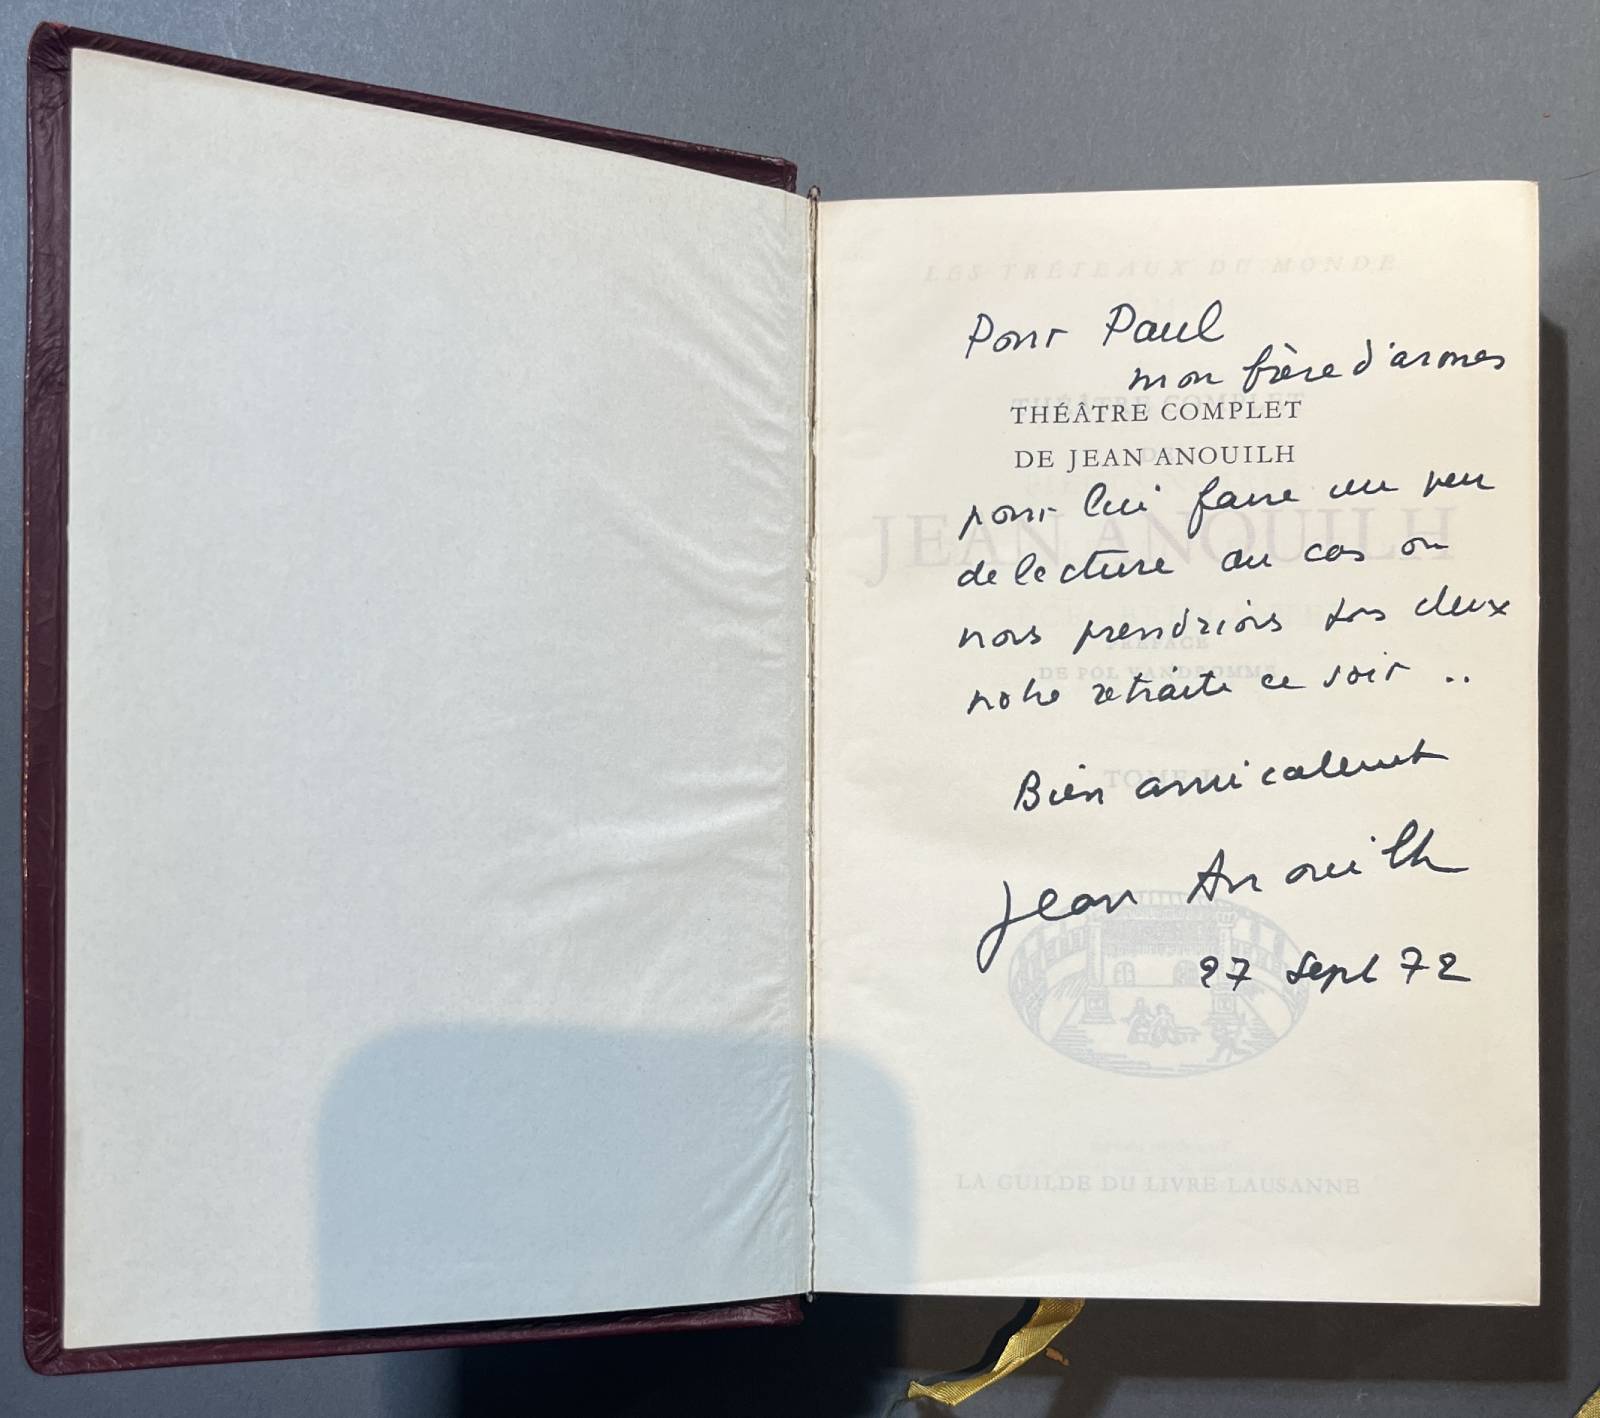 LES TRÉTEAUX DU MONDE
Pour Paul
mon frère d'armes
THÉÂTRE COMPLET
DE JEAN ANOUILH
pour lui faire un peu
JEAN ANOUILH
de lecture au cas où
nous prendrions tous deux
PRÉFACE
DE POL VANDROMME
notre retraite ce soir ..
Bien amicalement
TOME I
Jean Anouilh
27 Sept 72
LA GUILDE DU LIVRE LAUSANNE